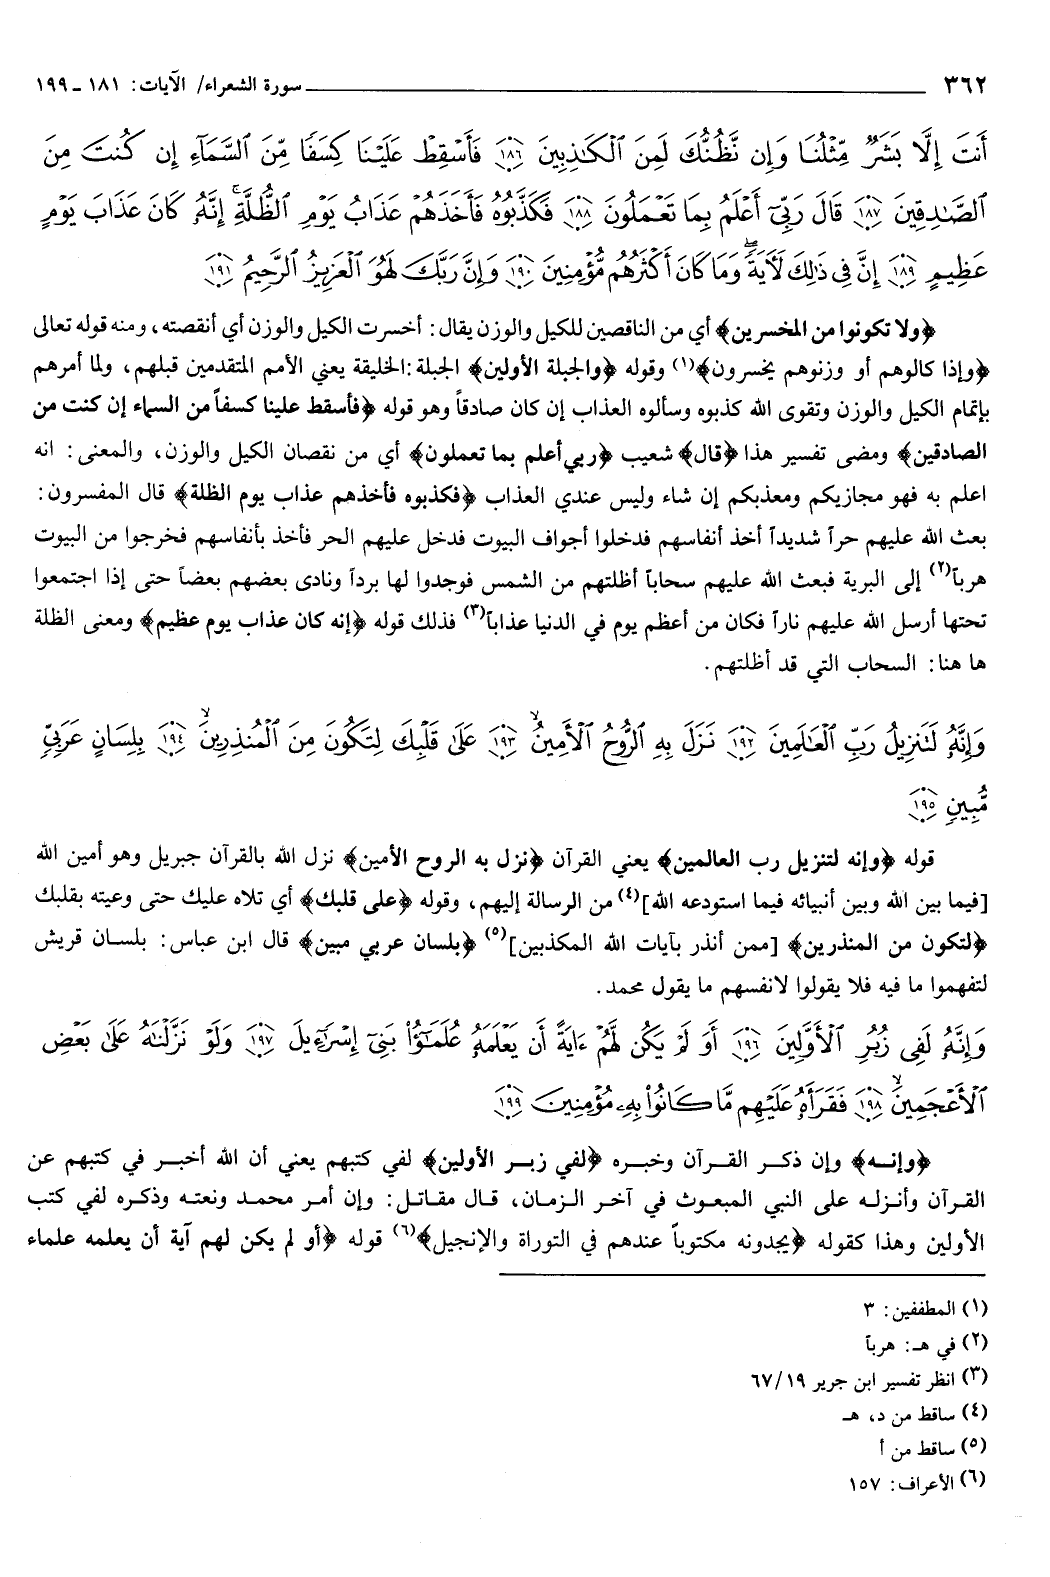 ٣٦٢ سورة الشعراء/ الآيات: ١٨١ ـ ١٩٩
أَنتَ إِلَّا بَشَرٌ مِّثْلُنَا وَإِن نَّظُنُّكَ لَمِنَ ٱلْكَـٰذِبِينَ ١٨٦ فَأَسْقِطْ عَلَيْنَا كِسَفًا مِّنَ ٱلسَّمَآءِ إِن كُنتَ مِنَ
ٱلصَّـٰدِقِينَ ١٨٧ قَالَ رَبِّىٓ أَعْلَمُ بِمَا تَعْمَلُونَ ١٨٨ فَكَذَّبُوهُ فَأَخَذَهُمْ عَذَابُ يَوْمِ ٱلظُّلَّةِ ۚ إِنَّهُۥ كَانَ عَذَابَ يَوْمٍ
عَظِيمٍ ١٨٩ إِنَّ فِى ذَٰلِكَ لَـَٔايَةً ۖ وَمَا كَانَ أَكْثَرُهُم مُّؤْمِنِينَ ١٩٠ وَإِنَّ رَبَّكَ لَهُوَ ٱلْعَزِيزُ ٱلرَّحِيمُ ١٩١
﴿ولا تكونوا من المخسرين﴾ أي من الناقصين للكيل والوزن يقال: أخسرت الكيل والوزن أي أنقصته، ومنه قوله تعالى
﴿وإذا كالوهم أو وزنوهم يخسرون﴾(١) وقوله ﴿والجبلة الأولين﴾ الجبلة: الخليقة يعني الأمم المتقدمين قبلهم، ولما أمرهم
بإتمام الكيل والوزن وتقوى الله كذبوه وسألوه العذاب إن كان صادقاً وهو قوله ﴿فأسقط علينا كسفاً من السماء إن كنت من
الصادقين﴾ ومضى تفسير هذا ﴿قال﴾ شعيب ﴿ربي أعلم بما تعملون﴾ أي من نقصان الكيل والوزن، والمعنى: انه
اعلم به فهو مجازيكم ومعذبكم إن شاء وليس عندي العذاب ﴿فكذبوه فأخذهم عذاب يوم الظلة﴾ قال المفسرون:
بعث الله عليهم حراً شديداً أخذ أنفاسهم فدخلوا أجواف البيوت فدخل عليهم الحر فأخذ بأنفاسهم فخرجوا من البيوت
هرباً(٢) إلى البرية فبعث الله عليهم سحاباً أظلتهم من الشمس فوجدوا لها برداً ونادى بعضهم بعضاً حتى إذا اجتمعوا
تحتها أرسل الله عليهم ناراً فكان من أعظم يوم في الدنيا عذاباً(٣) فذلك قوله ﴿إنه كان عذاب يوم عظيم﴾ ومعنى الظلة
ها هنا: السحاب التي قد أظلتهم.
وَإِنَّهُۥ لَتَنزِيلُ رَبِّ ٱلْعَـٰلَمِينَ ١٩٢ نَزَلَ بِهِ ٱلرُّوحُ ٱلْأَمِينُ ۙ ١٩٣ عَلَىٰ قَلْبِكَ لِتَكُونَ مِنَ ٱلْمُنذِرِينَ ۙ ١٩٤ بِلِسَانٍ عَرَبِىٍّ
مُّبِينٍ ١٩٥
قوله ﴿وإنه لتنزيل رب العالمين﴾ يعني القرآن ﴿نزل به الروح الأمين﴾ نزل الله بالقرآن جبريل وهو أمين الله
[فيما بين الله وبين أنبيائه فيما استودعه الله](٤) من الرسالة إليهم، وقوله ﴿على قلبك﴾ أي تلاه عليك حتى وعيته بقلبك
﴿لتكون من المنذرين﴾ [ممن أنذر بآيات الله المكذبين](٥) ﴿بلسان عربي مبين﴾ قال ابن عباس: بلسان قريش
لتفهموا ما فيه فلا يقولوا لانفسهم ما يقول محمد.
وَإِنَّهُۥ لَفِى زُبُرِ ٱلْأَوَّلِينَ ١٩٦ أَوَ لَمْ يَكُن لَّهُمْ ءَايَةً أَن يَعْلَمَهُۥ عُلَمَـٰٓؤُا۟ بَنِىٓ إِسْرَٰٓءِيلَ ١٩٧ وَلَوْ نَزَّلْنَـٰهُ عَلَىٰ بَعْضِ
ٱلْأَعْجَمِينَ ۙ ١٩٨ فَقَرَأَهُۥ عَلَيْهِم مَّا كَانُوا۟ بِهِۦ مُؤْمِنِينَ ١٩٩
﴿وإنه﴾ وإن ذكر القرآن وخبره ﴿لفي زبر الأولين﴾ لفي كتبهم يعني أن الله أخبر في كتبهم عن
القرآن وأنزله على النبي المبعوث في آخر الزمان، قال مقاتل: وإن أمر محمد ونعته وذكره لفي كتب
الأولين وهذا كقوله ﴿يجدونه مكتوباً عندهم في التوراة والإنجيل﴾(٦) قوله ﴿أو لم يكن لهم آية أن يعلمه علماء
(١) المطففين: ٣
(٢) في هـ: هرباً
(٣) انظر تفسير ابن جرير ١٩/ ٦٧
(٤) ساقط من د، هـ
(٥) ساقط من أ
(٦) الأعراف: ١٥٧